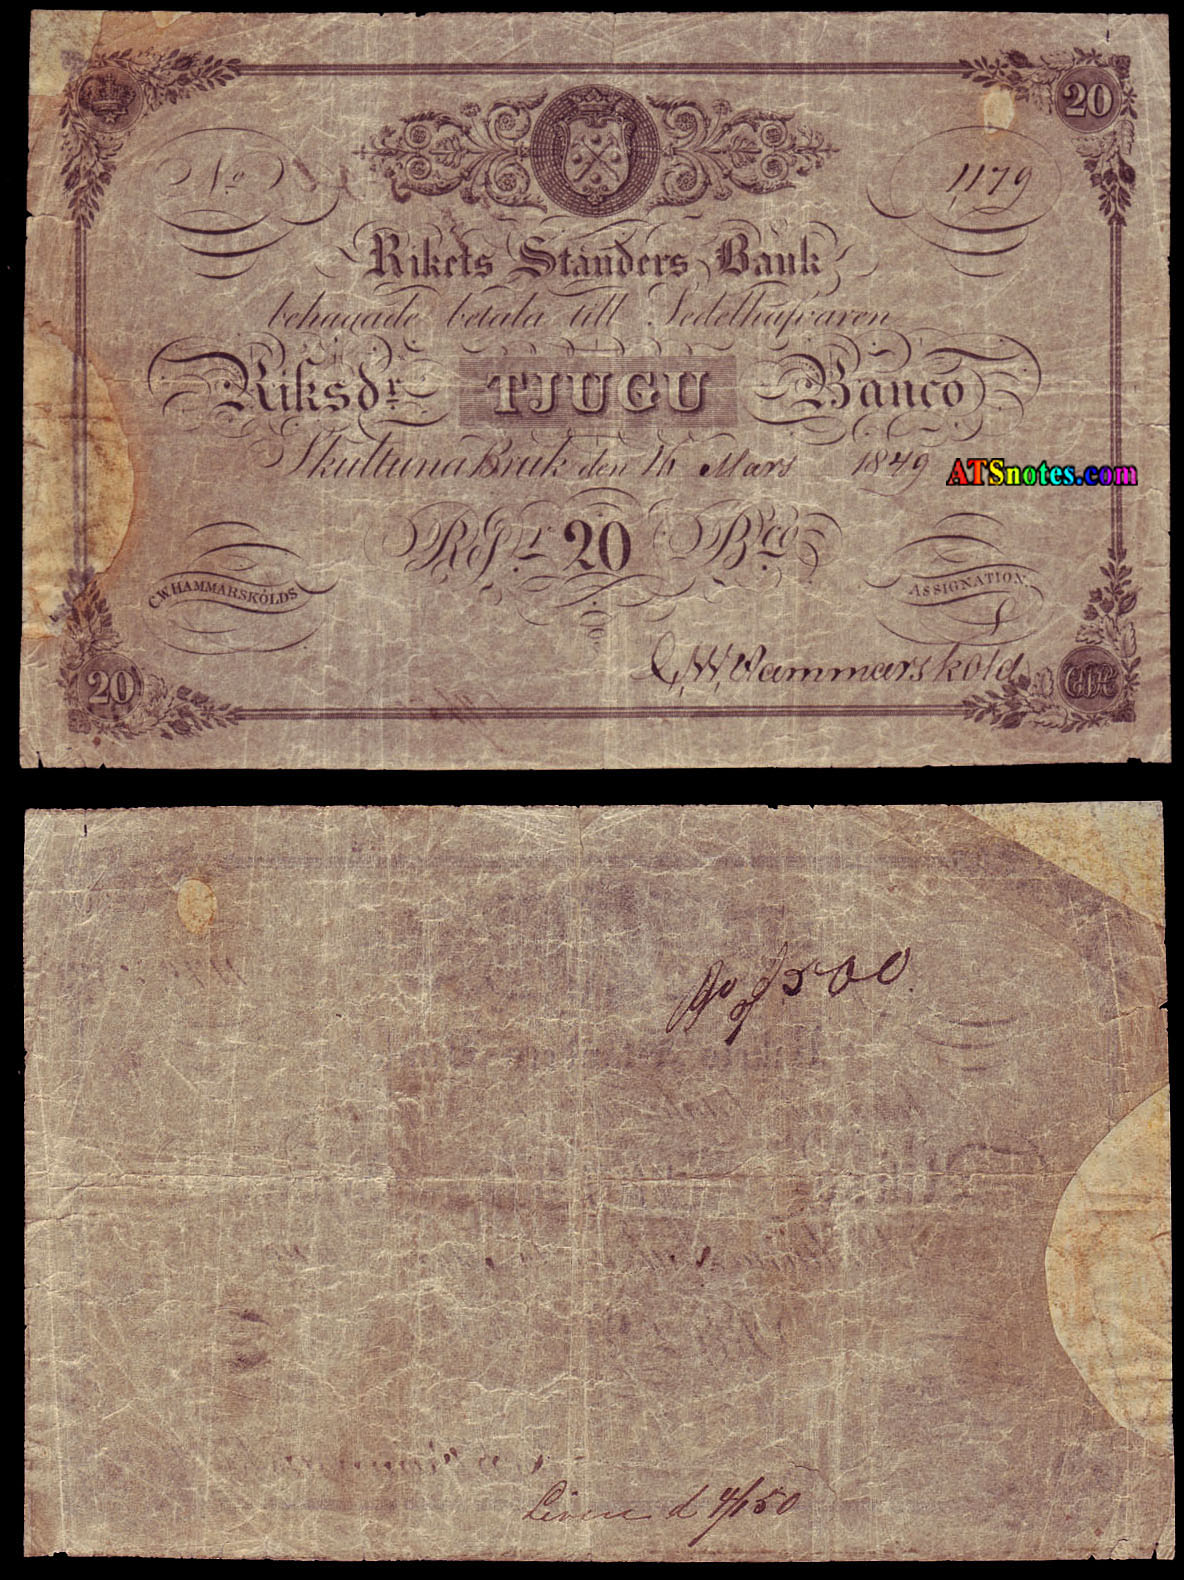 20
No 1179
Rikets Ständers Bank
behagade betala till Sedelhafvaren
Riksdr TJUGU Banco
Skultuna Bruk den 16 Mars 1849
ATSnotes.com
RGr 20 Bco
C.W.HAMMARSKÖLDS
ASSIGNATION
C,W,Hammarsköld
20
500
d 4/1 50